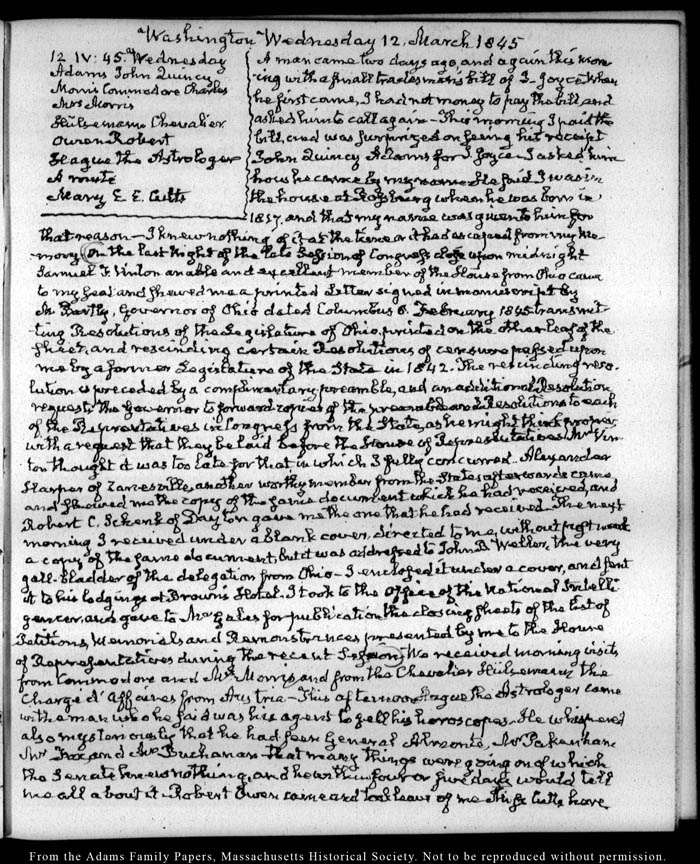 "Washington Wednesday 12. March 1845
12. IV: 45. Wednesday
Adams John Quincy
Morris Commodore Charles
Mrs Morris
Hulsemann Chevalier
Owen Robert
Hague the Astrologer
A mute
Mary E. E. Cutts
A man came two days ago, and again this morn-
ing with a small tradesman's bill of J. Joyce. When
he first came, I had not money to pay the bill and
asked him to call again – This morning I paid the
bill, and was surprized on seeing his receipt
John Quincy Adams for J. Joyce – I asked him
how he came by my name. He said I was in
the house at when he was born in
1817. and that my name was given to him for
that reason – I knew nothing of it at the time or it had escaped from my me-
mory. On the last Night of the late Session of Congress close upon midnight
Samuel F. Vinton an able and excellent member of the House from Ohio came
to my seat and shewed me a printed Letter signed in manuscript by
M. Bartley, Governor of Ohio dated Columbus 6. February 1845 transmit-
ting Resolutions of the Legislature of Ohio, printed on the other leaf of the
sheet, and rescinding certain Resolutions of censure passed upon
me by a former Legislature of the State in 1842. The rescinding reso-
lution is preceded by a complimentary preamble, and an additional Resolution
requests the Governor to forward copies of the preamble and Resolutions to each
of the Representatives in Congress from the State, as he might think proper,
with a request that they be laid before the House of Representatives. Mr Vin-
ton thought it was too late for that in which I fully concurred. Alexander
Harper of Zanesville, another worthy member from the State afterwards came
and shewed me the copy of the same document which he had received, and
Robert C. Schenk of Dayton gave me the one that he had received. The next
morning I received under a blank cover, directed to me, without post mark
a copy of the same document, but it was addressed to John B. Weller, the very
gall-bladder of the delegation from Ohio – I enclosed it under a cover, and sent
it to his lodgings at Brown's Hotel. I took to the Office of the National Intelli-
gencer, and gave to Mr Gales for publication the closing sheets of the list of
Petitions, Memorials and Remonstrances presented by me to the House
of Representatives during the recent Session. We received morning visits
from Commodore and Mrs Morris, and from the Chevalier Hulsemann the
Chargé d'Affaires from Austria – This afternoon Hague the Astrologer came
with a man who he said was his agent to sell his horoscopes – He whispered
also mysteriously that he had seen General Almonte, Mr Pakenham
Mr and Mr Buchanan – that many things were going on of which
the Senate knew nothing, and he within four or five days would tell
me all about it – Robert Owen came and took leave of me. Miss Cutts have
From the Adams Family Papers, Massachusetts Historical Society. Not to be reproduced without permission.